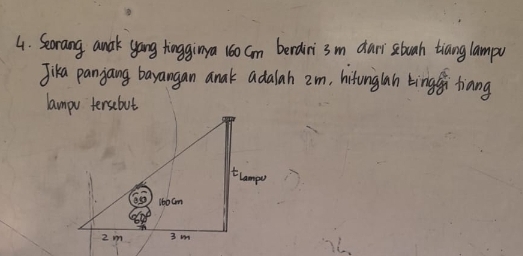 4. Seorang anak yang tingginya 160 Cm berdiri 3 m dari sebuah tiang lampu
Jika panjang bayangan anak adalah 2m. hitunglah tinggi tiang
lampu tersebut
t Lampu
160 Cm
2 m 3 m